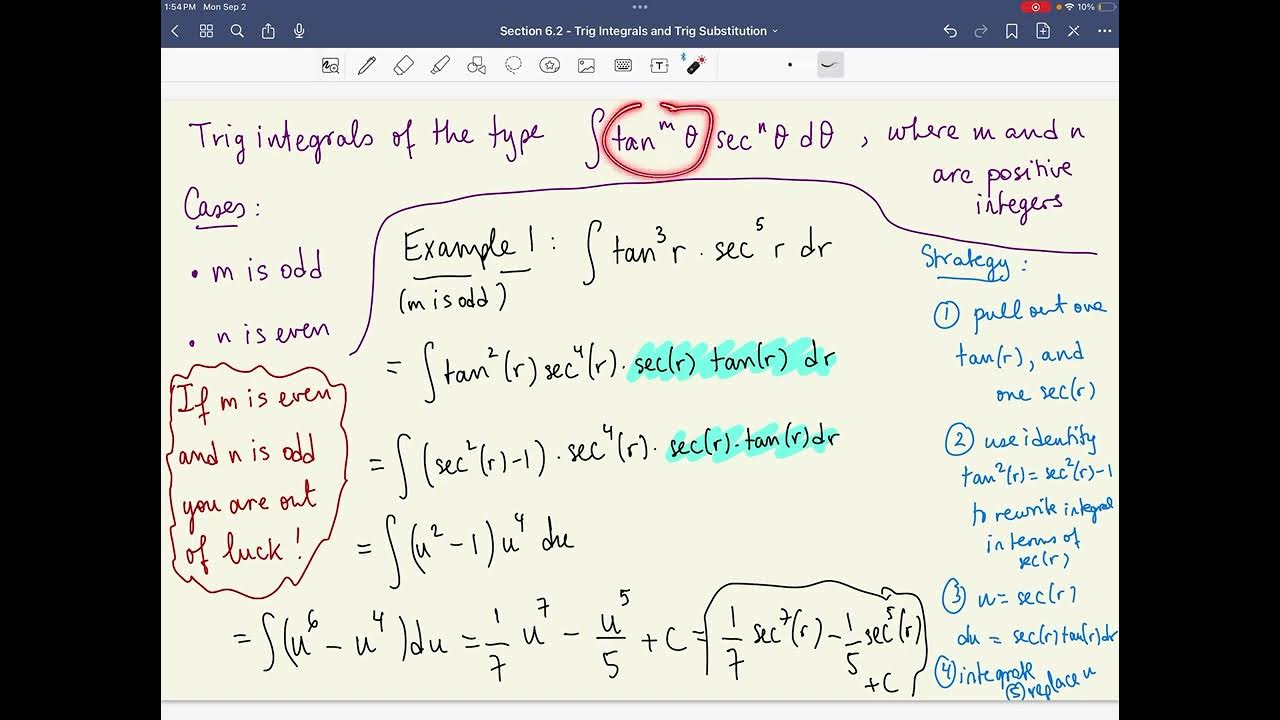 1:54 PM Mon Sep 2
10%
Section 6.2 - Trig Integrals and Trig Substitution
Trig integrals of the type ∫ tan^m θ sec^n θ dθ , where m and n
are positive
integers
Cases:
• m is odd
• n is even
If m is even
and n is odd
you are out
of luck!
Example 1: ∫ tan³ r · sec⁵ r dr
(m is odd)
= ∫ tan²(r) sec⁴(r) · sec(r) tan(r) dr
= ∫ (sec²(r) -1) · sec⁴(r) · sec(r) · tan(r) dr
= ∫ (u² - 1) u⁴ du
= ∫ (u⁶ - u⁴) du = 1/7 u⁷ - u⁵/5 + C = 1/7 sec⁷(r) - 1/5 sec⁵(r)
+ C
Strategy:
① pull out one
tan(r), and
one sec(r)
② use identity
tan²(r) = sec²(r) -1
to rewrite integral
in terms of
sec(r)
③ u = sec(r)
du = sec(r) tan(r) dr
④ integrate
⑤ replace u